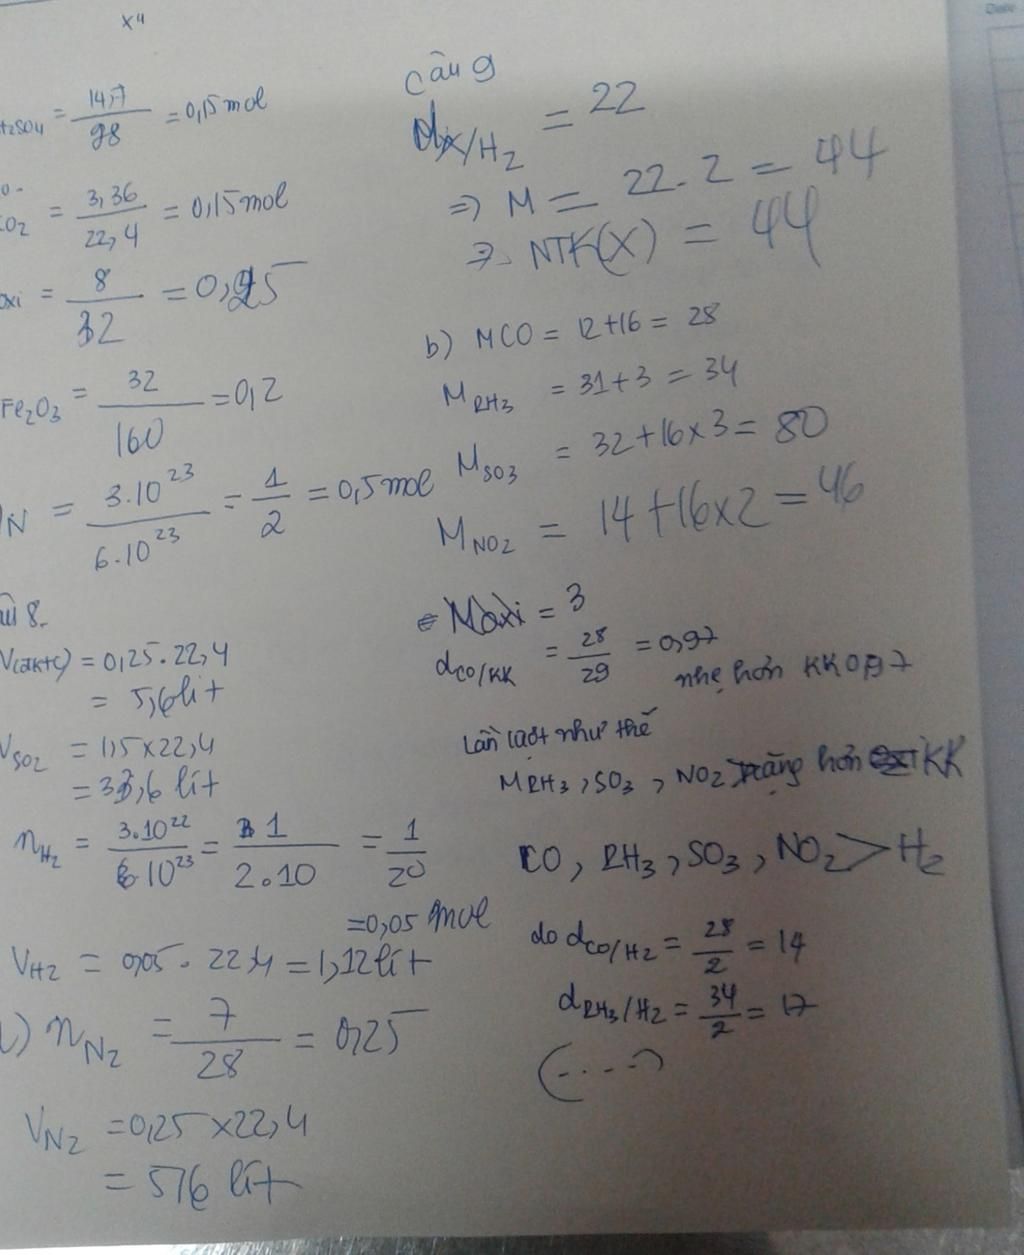 x4
H2SO4 = 14,7/98 = 0,15 mol
CO2 = 3,36/22,4 = 0,15 mol
oxi = 8/32 = 0,25
Fe2O3 = 32/160 = 0,2
N = 3.10^23/6.10^23 = 1/2 = 0,5 mol
8.
V(đktc) = 0,25.22,4
= 5,6 lit
VSO2 = 1,5 x 22,4
= 33,6 lít
nH2 = 3.10^22/6.10^23 = 1/2.10 = 1/20
= 0,05 mol
VH2 = 0,05.22,4 = 1,12 lít
nN2 = 7/28 = 0,25
VN2 = 0,25 x 22,4
= 5,6 lít
Câu 9
dX/H2 = 22
=> M = 22.2 = 44
=> NTK(X) = 44
b) MCO = 12+16 = 28
MPH3 = 31+3 = 34
MSO3 = 32+16x3 = 80
MNO2 = 14+16x2 = 46
Moxi = 3
dCO/KK = 28/29 = 0,97
nhẹ hơn KK 0,97
Lần lượt như thế
MPH3, SO3, NO2 nặng hơn KK
CO, PH3, SO3, NO2 > H2
do dCO/H2 = 28/2 = 14
dPH3/H2 = 34/2 = 17
(....)